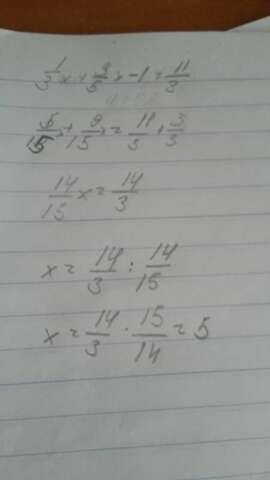 1/3 x + 3/5 x - 1 = 11/3
5/15 + 9/15 x = 11/3 + 3/3
14/15 x = 14/3
x = 14/3 : 14/15
x = 14/3 · 15/14 = 5